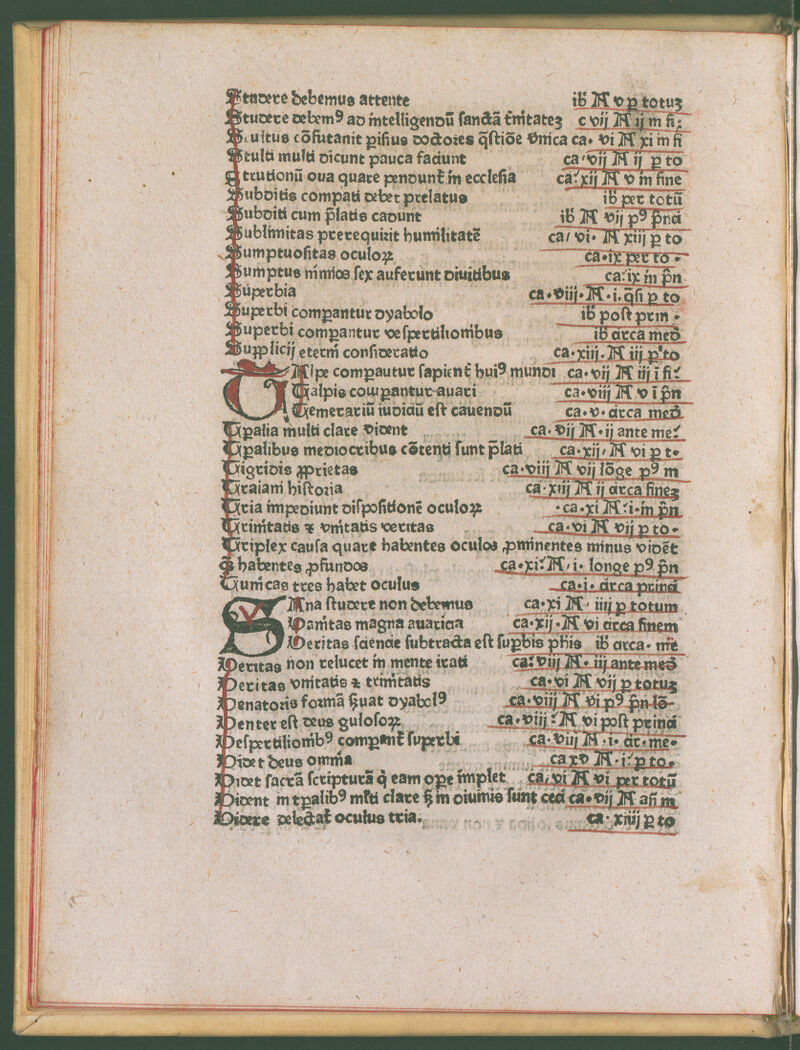 Studere debemus attente ib̃ M v p̱ totuꝫ
Studere debemꝰ ad intelligendũ sanctã t̃nitateꝫ c vij M ij in fi
Stultus cõfutauit pisius doctores q̃stiõe vnica ca. vi M xi in fi
Stulti multi dicunt pauca faciunt ca. vij M ij p̱ to
Strutionũ oua quare pendunt̃ in ecclesia ca. xij M v in fine
Subditis compati debet prelatus ib̃ per totũ
Subditi cum p̃latis cadunt ib̃ M vij pꝰ p̃nci
Sublimitas prerequirit humilitatẽ ca. vi. M xiij p̱ to
Sumptuositas oculoꝝ ca. ix per to.
Sumptus nimios sex auferunt diuitibus ca. ix in p̃n
Superbia ca. viij. M. i. q̃si p̱ to
Superbi comparantur dyabolo ib̃ post prin.
Superbi comparantur vespertilionibus ib̃ circa med̃
Supplicij eterni consideratio ca. xiij. M iij p̱ to
TAlpe comparautur sapient̃ huiꝰ mundi ca. vij M iij i fi.
Talpis coɯparantur auari ca. viij M v i p̃n
Temerariũ iudiciũ est cauendũ ca. v. circa med̃.
Tp̱alia multi clare vident ca. vij M. ij ante me.
Tp̱alibus mediocribus cõtenti sunt p̃lati ca. xij. M vi p̱ t.
Tigridis ꝓprietas ca. viij M vij lõge pꝰ m
Traiani historia ca. xiij M ij circa fineꝫ
Tria impediunt dispositionẽ oculoꝝ ca. xi M. i. in p̃n.
Trinitatis ⁊ vnitatis veritas ca. vi M vij p̱ to.
Triplex causa quare habentes oculos ꝓminentes minus vidẽt
q̃ habentes ꝓfundos ca. xi. M. i. longe pꝰ p̃n
Tunicas tres habet oculus ca. i. circa princi
VAna studere non debemus ca. xi M iiij p̱ totum
Vanitas magna auaricia ca. xij. M vi circa finem
Veritas sciencie subtracta est sup̱bis ph̃is ib̃ circa. me
Veritas non relucet in mente irati ca. viij M. iij ante med̃
Veritas vnitatis ⁊ trinitatis ca. vi M vij p̱ totuꝫ
Venatoris formã s̃uat dyabolꝰ ca. viij M vi pꝰ p̃n lõ-
Venter est deus gulosoꝝ ca. viij. M vi post princi
Vespertilionibꝰ comparant̃ superbi ca. viij M. i. cir. me.
Videt deus omnia ca xv M. i. p̱ to.
Videt sacrã scripturã q̇ eam ope implet ca. vi M vi per totũ
Vident in tp̱alibꝰ ml̃ti clare s̃ in diuinis sunt ceci ca. vij M añ m
Videre delectat̃ oculus tria. ca. xiiij p̱ to